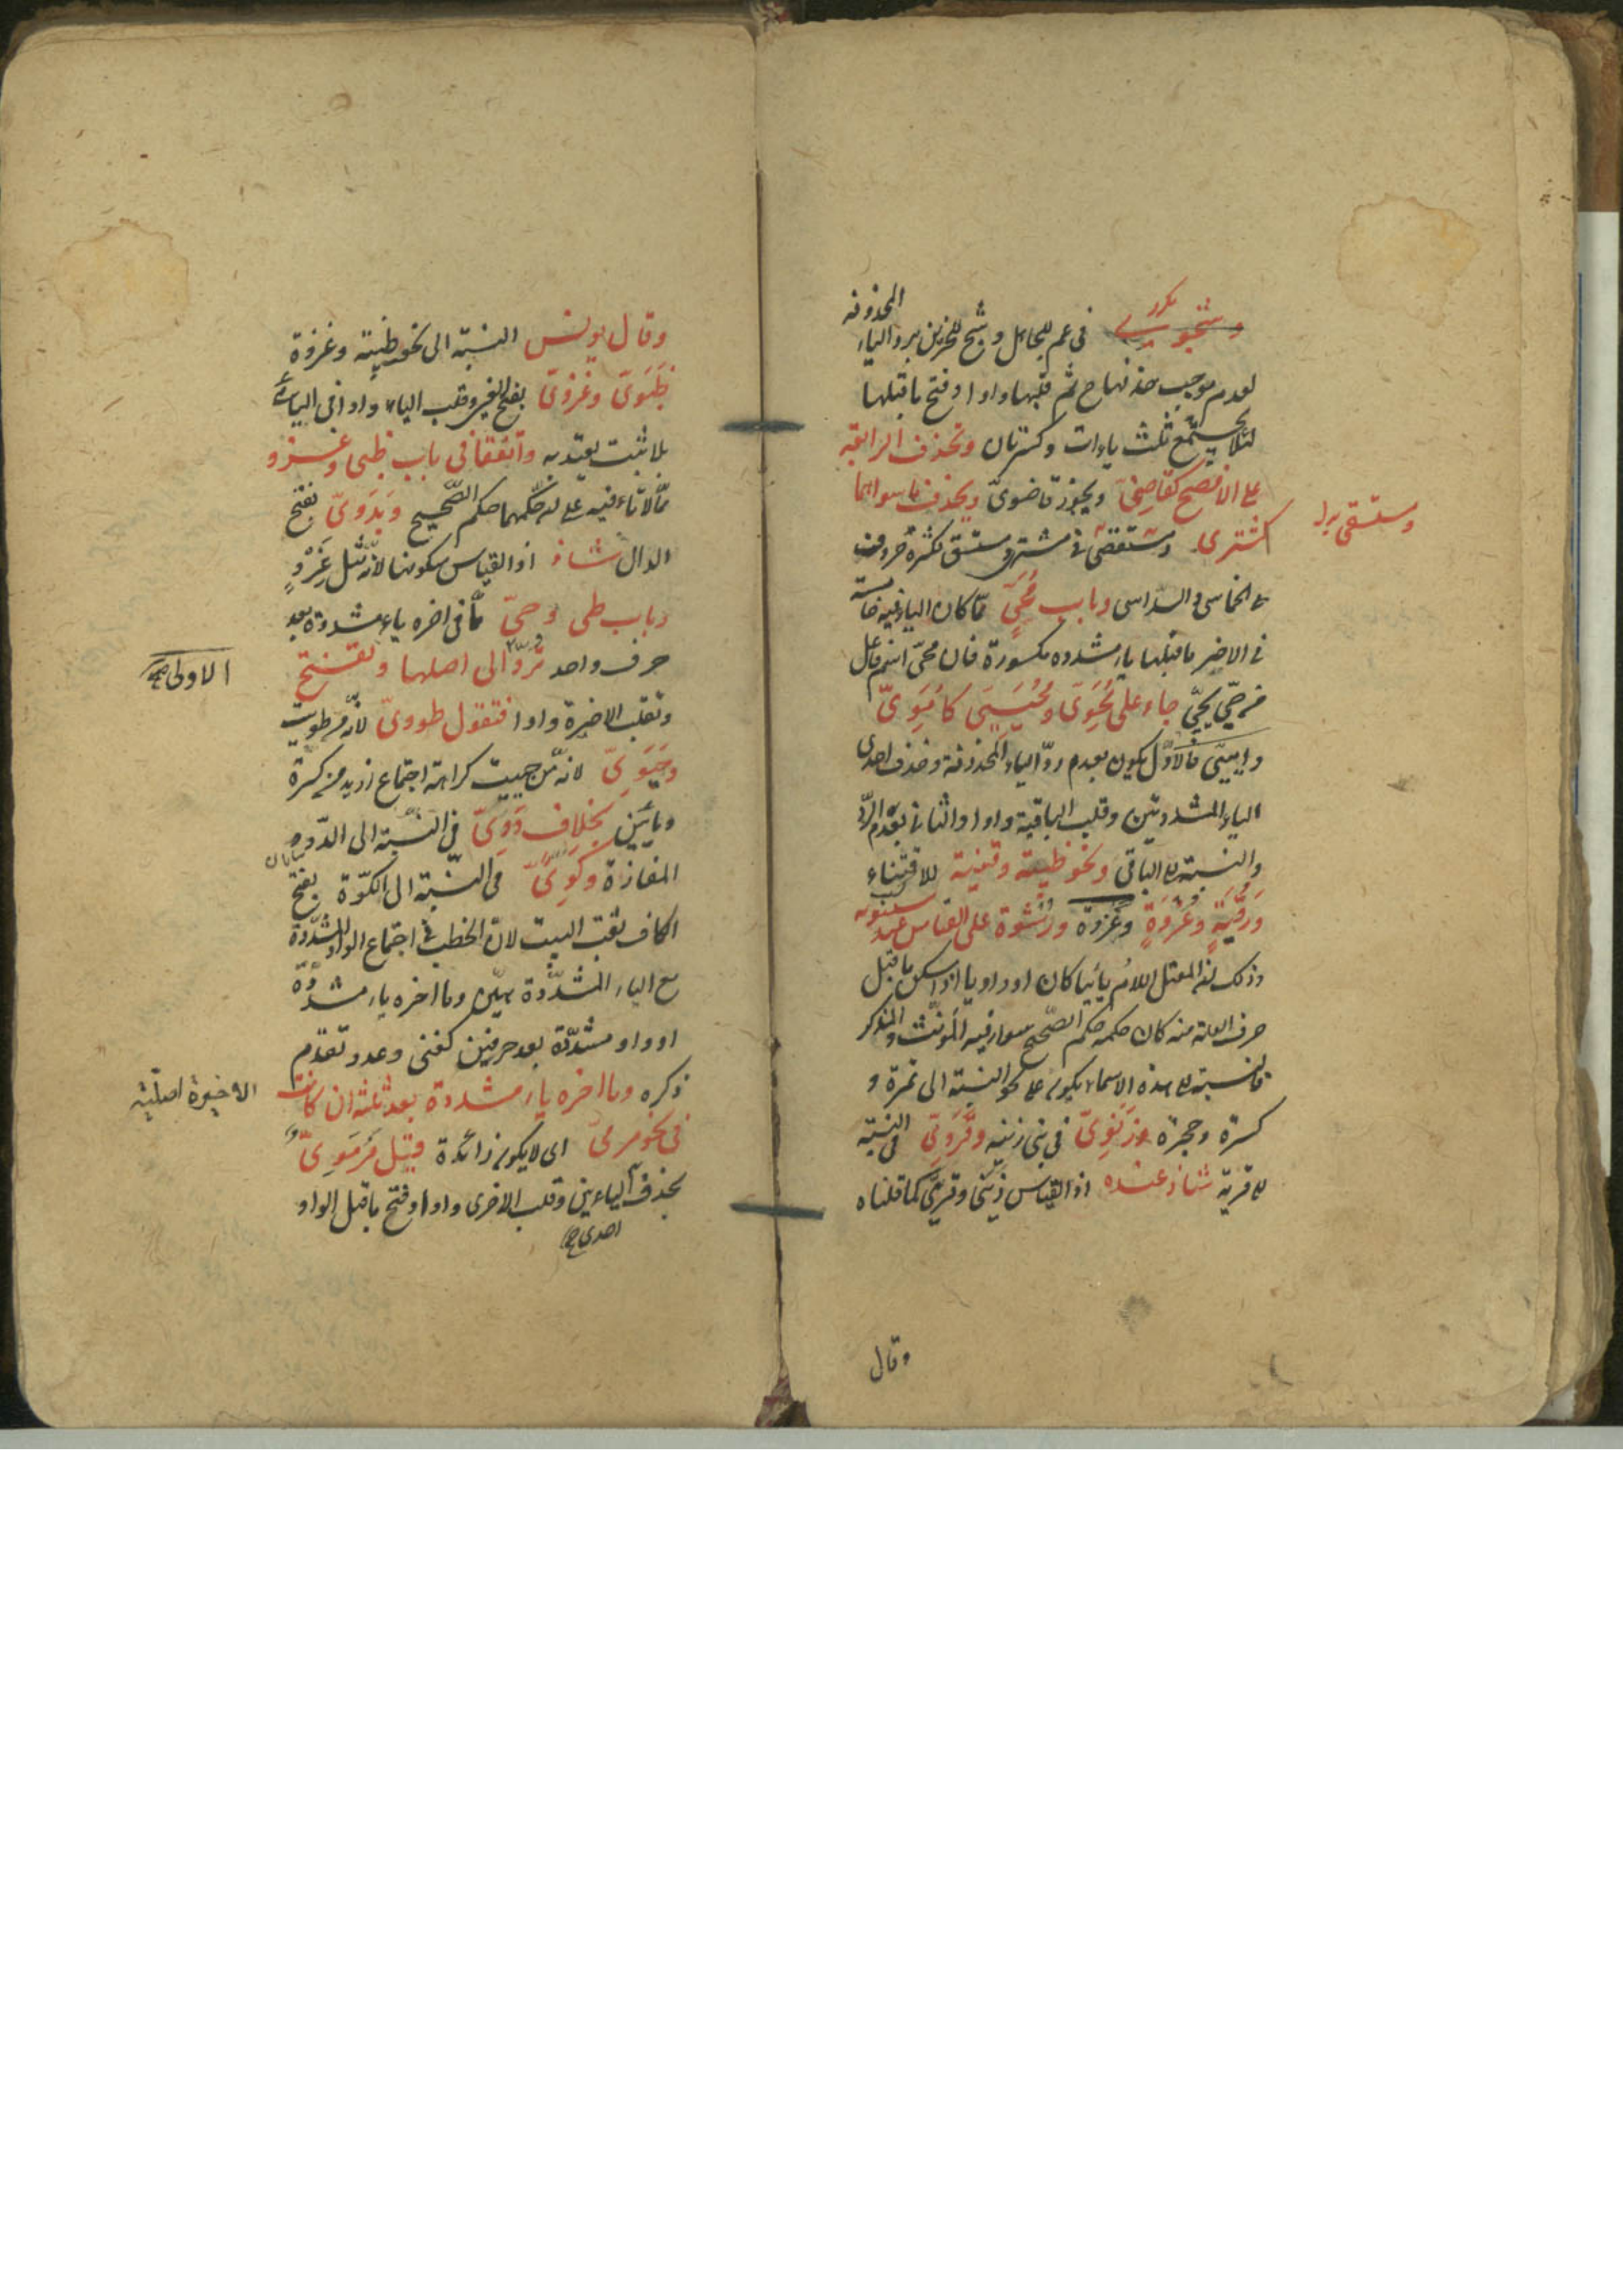 وشجوى مكرر فى عم للجاهل وشج للحزين برد الياء المحذوفة
لعدم موجب حذفها ح ثم قلبها واوا وفتح ما قبلها
لئلا يجتمع ثلث ياءات وكسرتان وتحذف الرابعة
على الافصح كقاضىّ ويجوز قاضوىّ ويحذف ما سواهما
كمشترى ومستقصى فى مشتر ومستق لكثرة حروف
ومستقى
الخماسى والسداسى وباب مُحَيٍّ مما كان الياء فيه خامسة
فى الاخير ما قبلها ياء مشددة مكسورة فان محىّ اسم فاعل
من حيّى يحيّى جاء على مُحَوِىّ ومُحَيِّىّ كاُمَوِىّ
واميّىّ فالاول يكون بعدم ردّ الياء المحذوفة وحذف احدى
الياء المشددتين وقلب الباقية واوا والثانى بعدم الردّ
والنسبة الى الباقى ونحو ظبية وقنية للاقتناء
ورُقْيَةٍ وغَزْوَةٍ وعُرْوة ورِشْوة على القياس عند سيبويه
وذلك لان المعتل اللام يائيا كان او واويا اذا سكن ما قبل
حرف العلة منه كان حكمه حكم الصّحيح سواء فيه المؤنّث والمذكر
فالنسبة الى هذه الاسماء يكون على نحو النسبة الى تمرة و
كسرة وحجرة وزَنَوِىّ فى بنى زنية وقَرَوِىّ فى النسبة
الى قرية شاذ عنده اذ القياس زِنْيىّ وقرييّ كما قلناه
وقال
وقال يونس النسبة الى نحو ظبية وغزوة
ظَبَوىّ وغزوىّ بفتح العين وقلب الياء واوا فى اليائى
بلا ثبت يعتد به واتفقا فى باب ظبى وغزو
مما لا تاء فيه على ان حكمهما حكم الصّحيح وبَدَوىّ بفتح
الدال شاذ اذ القياس سكونها لانه مثل غَزْوٍ
وباب طى وحىّ مما فى اخره ياء مشددة بعد
حرف واحد تردّ الى اصلها وتفتح
الاولى صح
وتقلب الاخيرة واوا فتقول طووىّ لانه من طويت
وحَيَوِىّ لانه من حييت كراهة اجتماع ازيد من كسرة
وياءين بخلاف دَوِّىّ فى النسبة الى الدّو
المفازة وكَوِّىّ فى النسبة الى الكوّة بفتح
الكاف ثقب البيت لان الخطب فى اجتماع الواو المشدّدة
مع الياء المشدّدة هيّن وما اخره ياء مشددة
او واو مشدّدة بعد حرفين كغنى وعدو تقدم
ذكره وما اخره ياء مشددة بعد ثلثة ان كانت
الاخيرة اصلية
فى نحو مرمىّ اى لا يكون زائدة قيل مَرْمَوىّ
بحذف الياءين وقلب الاخرى واوا وفتح ما قبل الواو
احدى صح